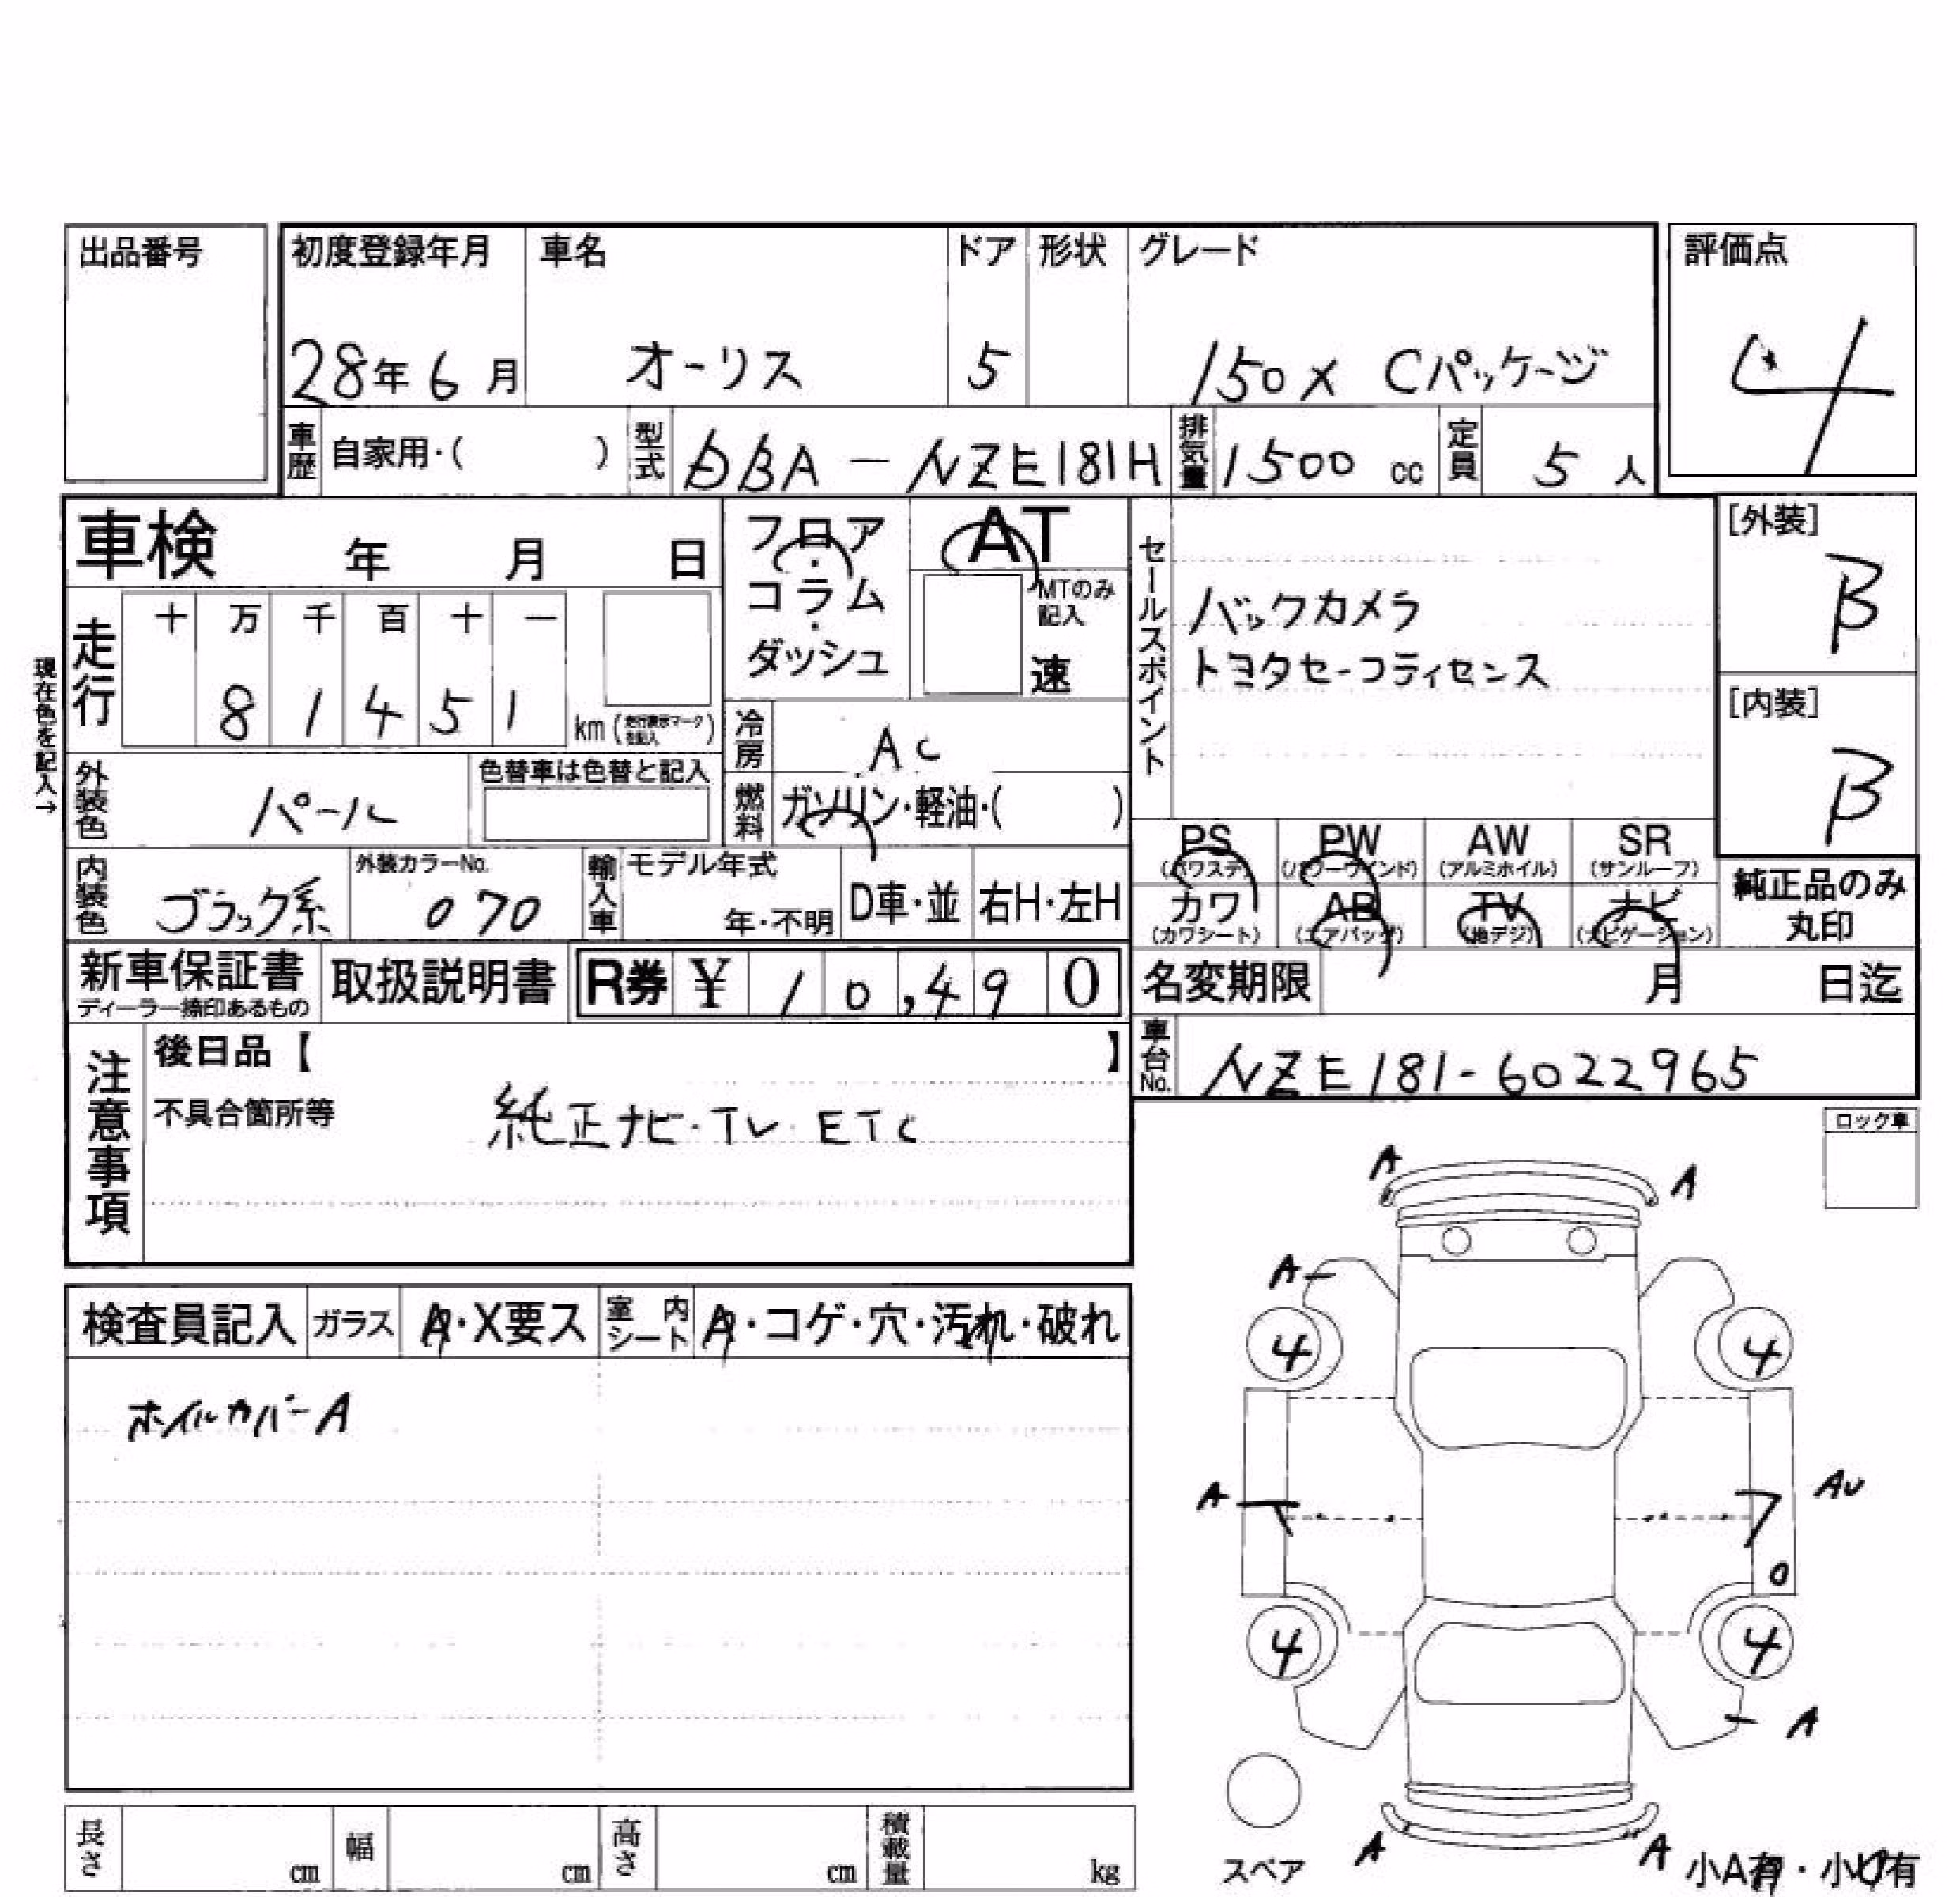 出品番号
初度登録年月 車名 ドア 形状 グレード 評価点
28年6月 オーリス 5 150X Cパッケージ 4
車歴 自家用・( ) 型式 DBA-NZE181H 排気量 1500 cc 定員 5 人
車検 年 月 日
フロア・コラム・ダッシュ
AT
MTのみ記入
速
走行 十 万 千 百 十 一
8 1 4 5 1 km (走行表示マークを記入)
現在色を記入→
冷房 AC
外装色 パール 色替車は色替と記入
燃料 ガソリン・軽油・( )
内装色 ブラック系 外装カラーNo. 070 輸入車 モデル年式 年・不明 D車・並 右H・左H
新車保証書 ディーラー捺印あるもの 取扱説明書 R券 ¥ 10,490
セールスポイント
バックカメラ
トヨタセーフティセンス
[外装] B
[内装] B
PS (パワステ) PW (パワーウインド) AW (アルミホイル) SR (サンルーフ)
カワ (カワシート) AB (エアバッグ) TV (地デジ) ナビ (ナビゲーション)
純正品のみ丸印
名変期限 月 日迄
車台No. NZE181-6022965
注意事項
後日品【 】
不具合箇所等 純正ナビ・TV ETC
ロック車
検査員記入 ガラス A・X要ス 室内シート A・コゲ・穴・汚れ・破れ
ホイルカバーA
A A
A
4 4
A AU
4 4
A
A A
スペア
小A有・小U有
長さ cm 幅 cm 高さ cm 積載量 kg